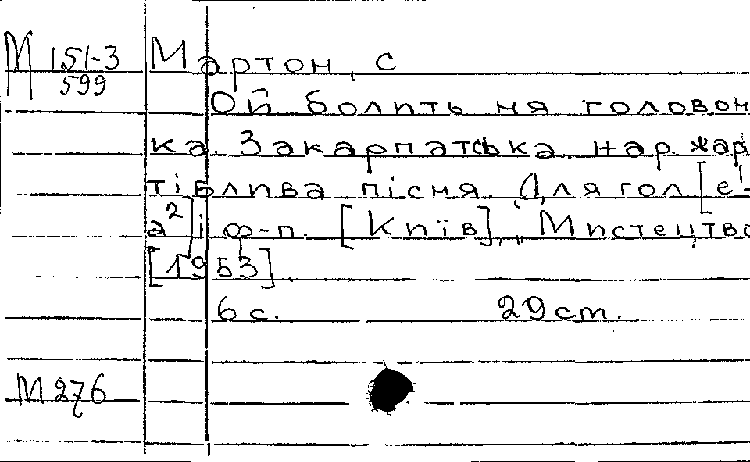 М 151-3 Мартон, С
599
Ой болить ня головон
ка. Закарпатська нар. жар
тівлива пісня. Для гол[е!
а²] і ф-п. [Київ], "Мистецтво
[1953]
6 с. 29 cm.
М 276